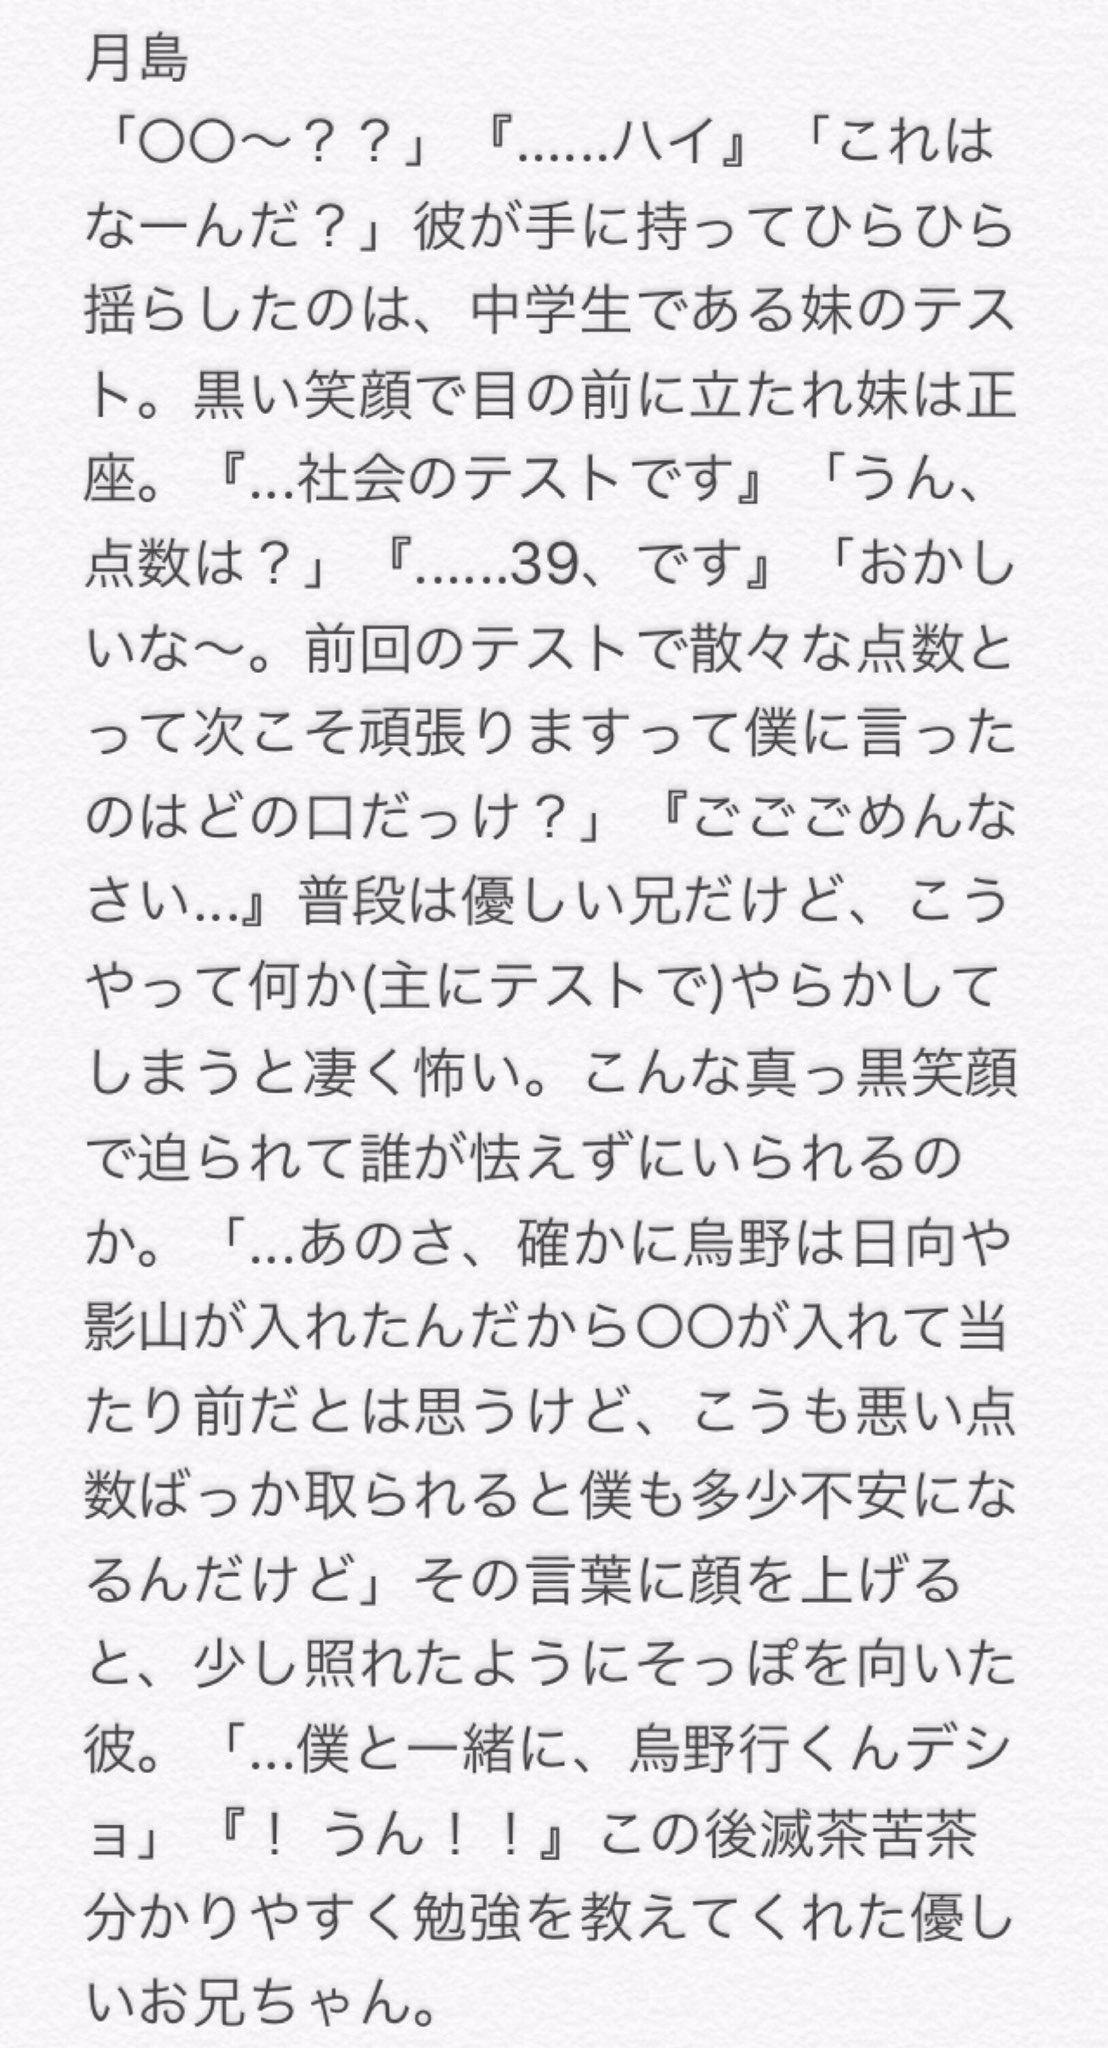 月島
「〇〇〜？？」『......ハイ』「これは
なーんだ？」彼が手に持ってひらひら
揺らしたのは、中学生である妹のテス
ト。黒い笑顔で目の前に立たれ妹は正
座。『...社会のテストです』「うん、
点数は？」『......39、です』「おかし
いな〜。前回のテストで散々な点数と
って次こそ頑張りますって僕に言った
のはどの口だっけ？」『ごごごめんな
さい...』普段は優しい兄だけど、こう
やって何か(主にテストで)やらかして
しまうと凄く怖い。こんな真っ黒笑顔
で迫られて誰が怯えずにいられるの
か。「...あのさ、確かに烏野は日向や
影山が入れたんだから〇〇が入れて当
たり前だとは思うけど、こうも悪い点
数ばっか取られると僕も多少不安にな
るんだけど」その言葉に顔を上げる
と、少し照れたようにそっぽを向いた
彼。「...僕と一緒に、烏野行くんデシ
ョ」『！ うん！！』この後滅茶苦茶
分かりやすく勉強を教えてくれた優し
いお兄ちゃん。